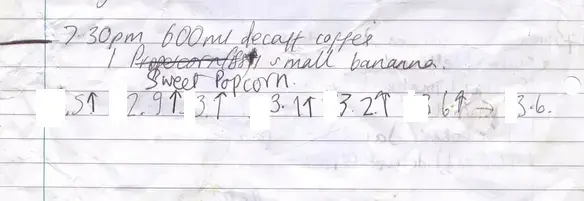 7.30pm 600ml decaff coffee
1 small bananna.
Sweet Popcorn.
.5↑ 2.9↑ 3.↑ 3.1↑ 3.2↑ 3.6↑ → 3.6.